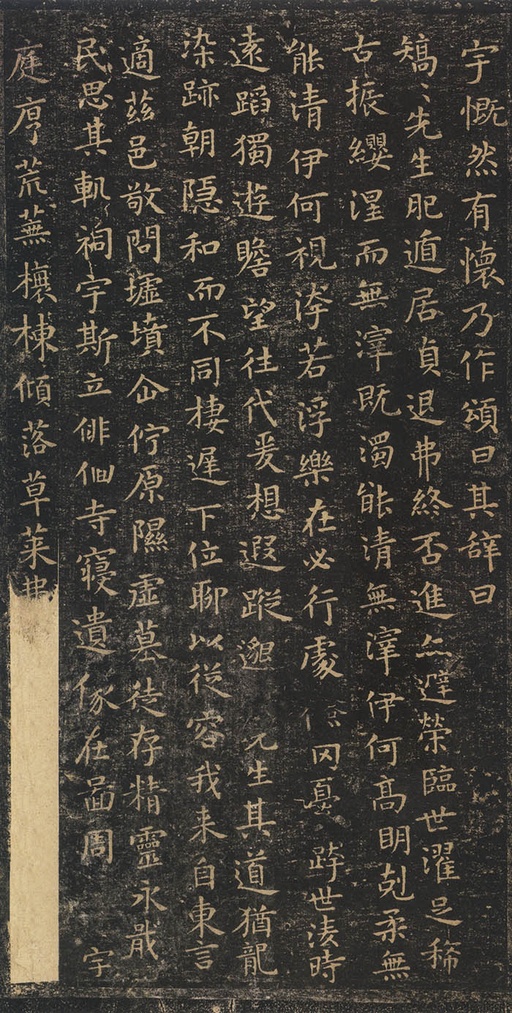 宇慨然有懷乃作頌曰其辭曰
矯〻先生肥遁居貞退弗終否進亦避榮臨世濯足稀
古振纓涅而無滓既濁能清無滓伊何高明剋柔無
能清伊何視洿若浮樂在必行處儉罔憂跨世淩時
遠蹈獨遊瞻望往代爰想遐蹤邈先生其道猶龍
染跡朝隱和而不同棲遲下位聊以從容我来自東言
適茲邑敬問墟墳企佇原隰虛墓徒存精靈永戢
民思其軌祠宇斯立俳佪寺寢遺像在圖周宇
庭序荒蕪榱棟傾落草萊弗